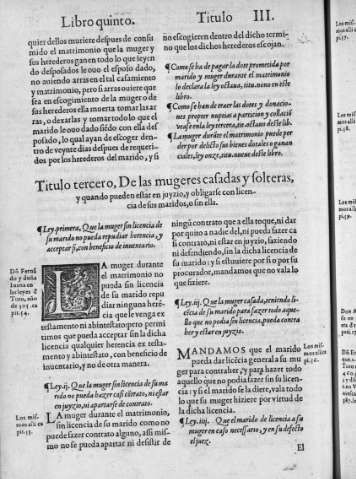 Libro quinto. Titulo III.
quier dellos muriere despues de consu
mido el matrimonio que la muger y
sus herederos ganen todo lo que seyen
do desposados le ouo el esposo dado,
no auiendo arras en el tal casamiento
y matrimonio, pero si arras ouiere que
sea en escogimiento de la muger o de
sus herederos ella muerta tomar las ar
ras, o dexarlas y tomar todo lo que el
marido le ouo dado siẽdo con ella des
posado, lo qual ayan de escoger den-
tro de veynte dias despues de requeri-
dos por los herederos del marido, y si
no escogieren dentro del dicho termi-
no que los dichos herederos escojan.
¶Como se ha de pagar la dote prometida por
marido y muger durante el matrimonio
lo declara la ley octaua, titu. nono en este
libro.
¶Como se han de traer las dotes y donacio-
nes propter nupcias a particion y collaciõ
vease en la ley tercera,
¶La muger durãte el matrimonio puede per
der por delicto sus bienes dotales o ganan
ciales, ley onze, titu. nueue deste libro.
Titulo tercero, De las mugeres casadas y solteras,
y quando pueden estar en juyzio, y obligarse con licen-
cia de sus maridos, o sin ella.
¶Ley primera, Que la muger sin licencia de
su marido no pueda repudiar herencia, y
acceptar si, con beneficio de inuentario.
Dõ Fernã
do y doña
Iuana en
las leyes d
Toro, año
de 505 ca
pit. 54.
LA muger durante
el matrimonio no
pueda sin licencia
de su marido repu
diar ninguna heren
cia que le venga ex
testamento ni abintestato pero permi
timos que pueda acceptar sin la dicha
licencia qualquier herencia ex testa-
mento y abintestato, con beneficio de
inuentario, y no de otra manera.
¶Ley .ij. Que la muger sin licencia de su ma
rido no pueda hazer cõtrato, ni estar
en juyzio, ni apartarse de contrato.
Los mis-
mos alli ca
pit. 55.
LA muger durante el matrimonio,
sin licencia de su marido como no
puede fazer contrato alguno, assi mis-
mo no se pueda apartar ni desistir de
ningũ contrato que a ella toque, ni dar
por quito a nadie del, ni pueda fazer ca
si contrato, ni estar en juyzio, faziendo
ni defendiendo, sin la dicha licencia de
su marido: y si estuuiere por si o por su
procurador, mandamos que no vala lo
que fiziere.
¶Ley .iij. Que la muger casada, teniendo li-
cẽcia de su marido para fazer todo aque-
llo que no podia sin licencia, pueda contra
her y estar en juyzio.
MANDAMOS que el marido
pueda dar licẽcia general a su mu
ger para contraher, y para hazer todo
aquello que no podia fazer sin su licen-
cia: y si el marido se la diere, vala todo
lo que su muger hiziere por virtud de
la dicha licencia.
Los mis-
mos alli ca
pit. 56.
¶Ley .iiij. Que el marido de licencia a su
muger en caso necessario, y en su defecto
el juez.
El